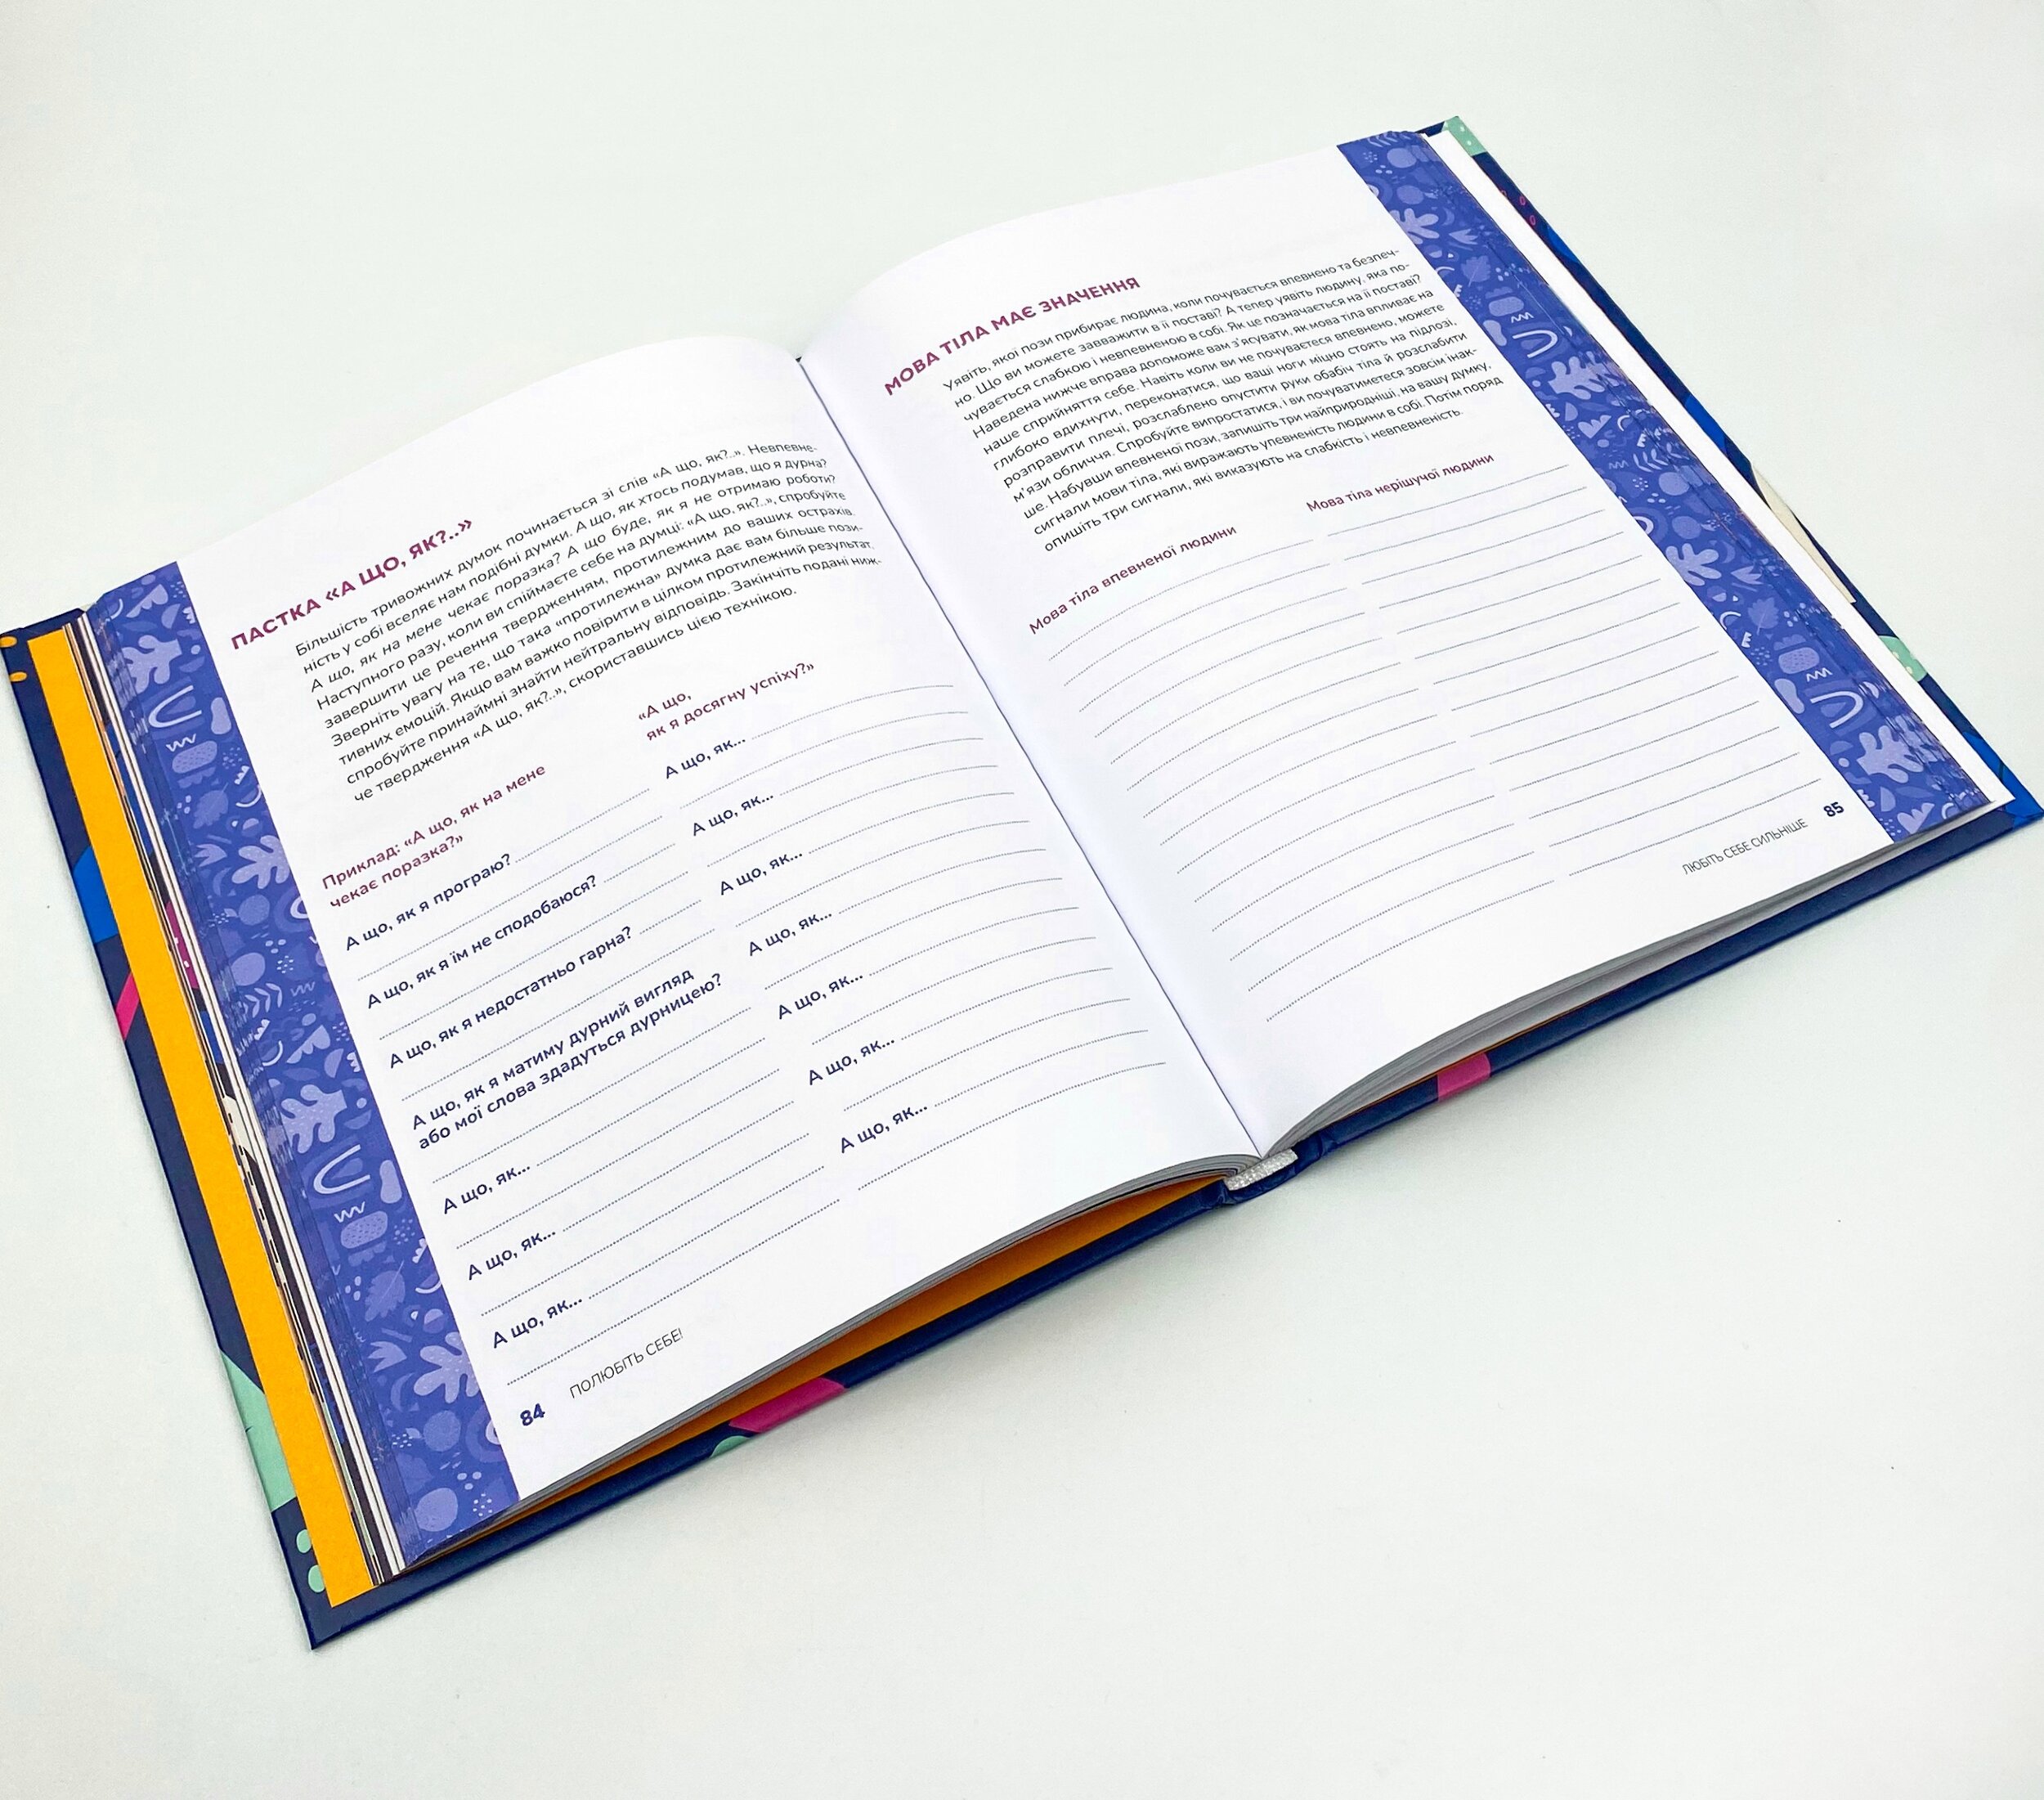 ПАСТКА «А ЩО, ЯК?..»
Більшість тривожних думок починається зі слів «А що, як?..». Невпевне-
ність у собі вселяє нам подібні думки. А що, як хтось подумав, що я дурна?
А що, як на мене чекає поразка? А що буде, як я не отримаю роботи?
Наступного разу, коли ви спіймаєте себе на думці: «А що, як?..», спробуйте
завершити це речення твердженням, протилежним до ваших острахів.
Зверніть увагу на те, що така «протилежна» думка дає вам більше пози-
тивних емоцій. Якщо вам важко повірити в цілком протилежний результат,
спробуйте принаймні знайти нейтральну відповідь. Закінчіть подані ниж-
че твердження «А що, як?..», скориставшись цією технікою.
Приклад: «А що, як на мене
чекає поразка?»
А що, як я програю?
А що, як я їм не сподобаюся?
А що, як я недостатньо гарна?
А що, як я матиму дурний вигляд
або мої слова здадуться дурницею?
А що, як...
А що, як...
А що, як...
«А що,
як я досягну успіху?»
А що, як...
А що, як...
А що, як...
А що, як...
А що, як...
А що, як...
А що, як...
84 ПОЛЮБІТЬ СЕБЕ!
МОВА ТІЛА МАЄ ЗНАЧЕННЯ
Уявіть, якої пози прибирає людина, коли почувається впевнено та безпеч-
но. Що ви можете завважити в її поставі? А тепер уявіть людину, яка по-
чувається слабкою і невпевненою в собі. Як це позначається на її поставі?
Наведена нижче вправа допоможе вам з'ясувати, як мова тіла впливає на
наше сприйняття себе. Навіть коли ви не почуваєтеся впевнено, можете
глибоко вдихнути, переконатися, що ваші ноги міцно стоять на підлозі,
розправити плечі, розслаблено опустити руки обабіч тіла й розслабити
м'язи обличчя. Спробуйте випростатися, і ви почуватиметеся зовсім інак-
ше. Набувши впевненої пози, запишіть три найприродніші, на вашу думку,
сигнали мови тіла, які виражають упевненість людини в собі. Потім поряд
опишіть три сигнали, які виказують на слабкість і невпевненість.
Мова тіла впевненої людини
Мова тіла нерішучої людини
ЛЮБІТЬ СЕБЕ СИЛЬНІШЕ 85